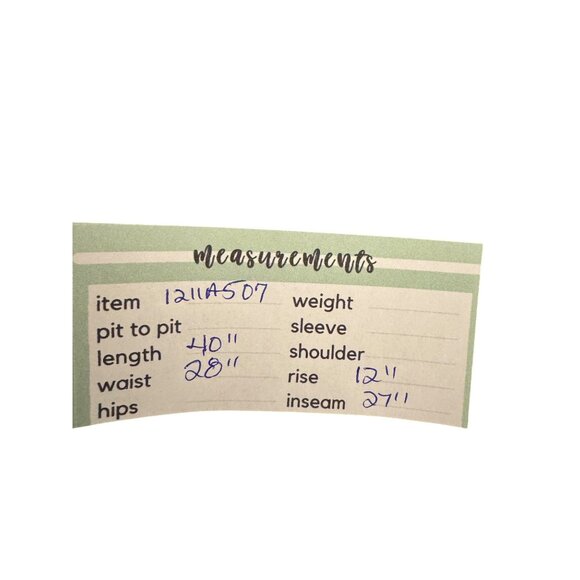 measurements
item 1211A507
pit to pit
length 40"
waist 28"
hips
weight
sleeve
shoulder
rise 12"
inseam 27"